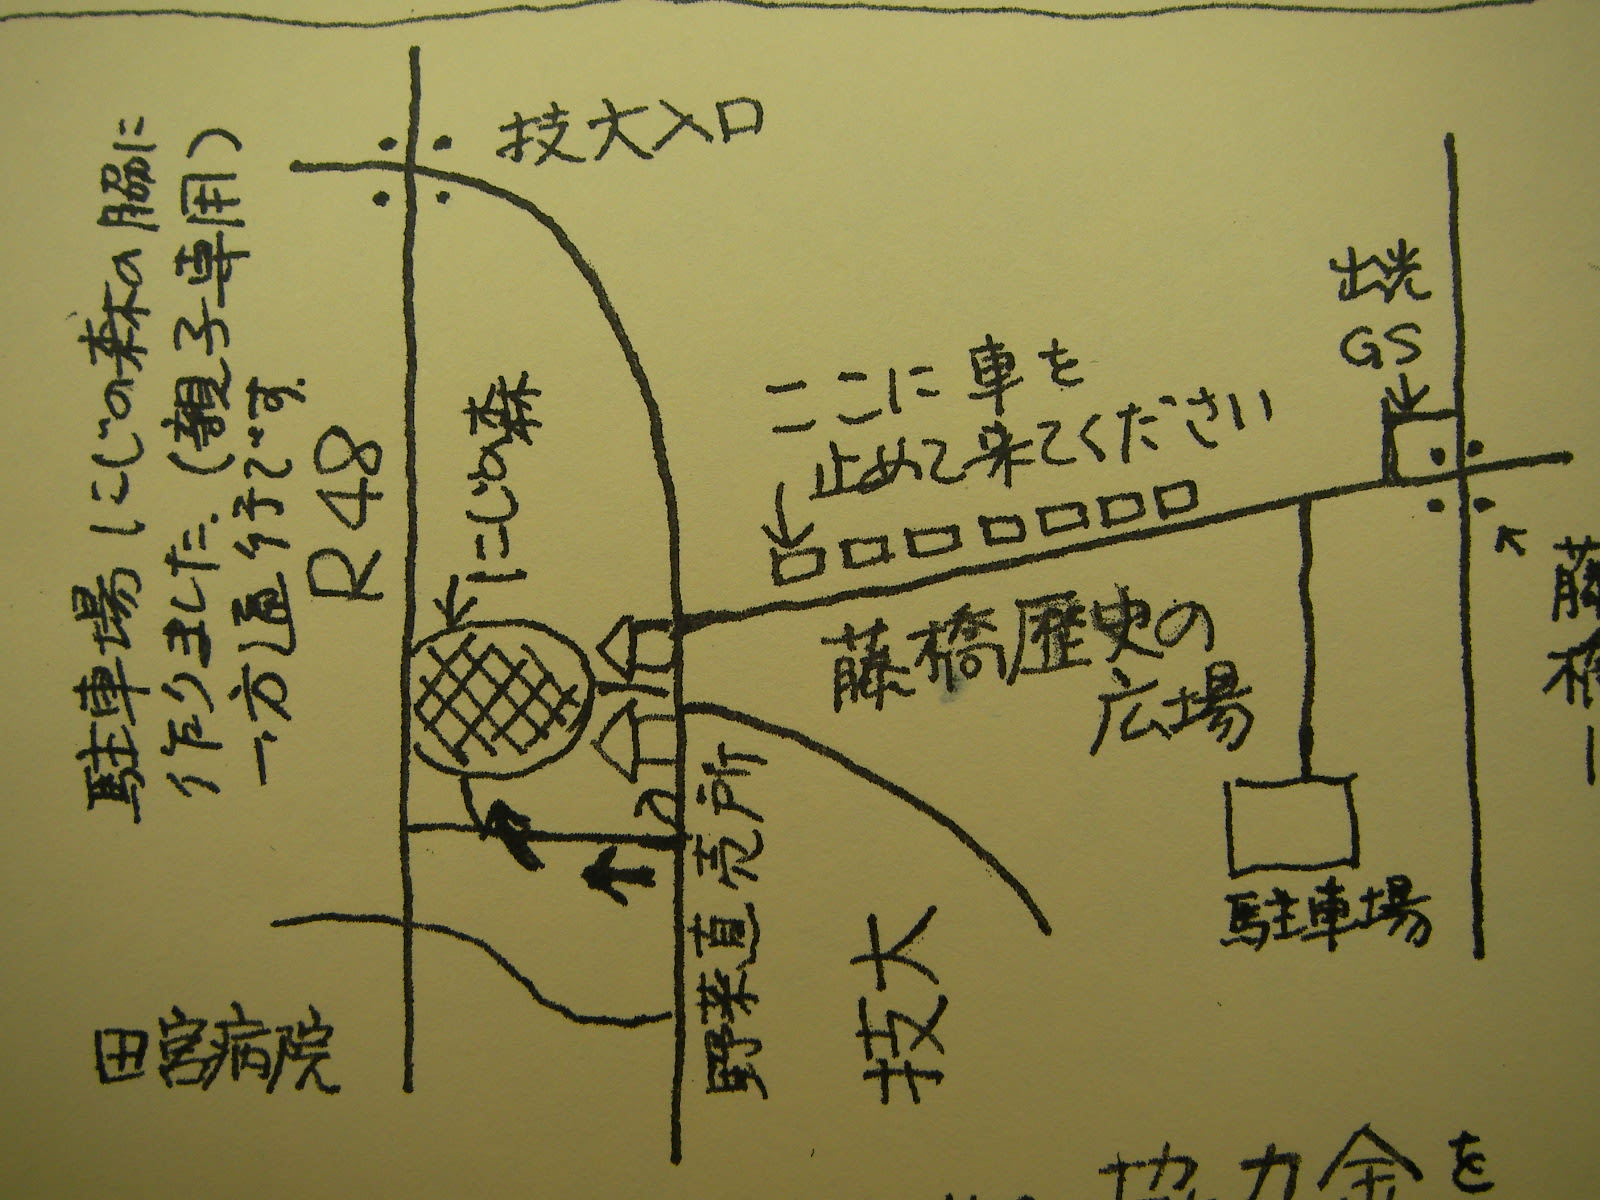 技大入口
駐車場にじの森の脇に
作りました.(親子専用)
一方通行です.
R48
にじの森
出光
GS
ここに車を
止めて来てください
藤橋歴史の
広場
駐車場
野菜直売所
技大
田宮病院
藤橋一
協力金を